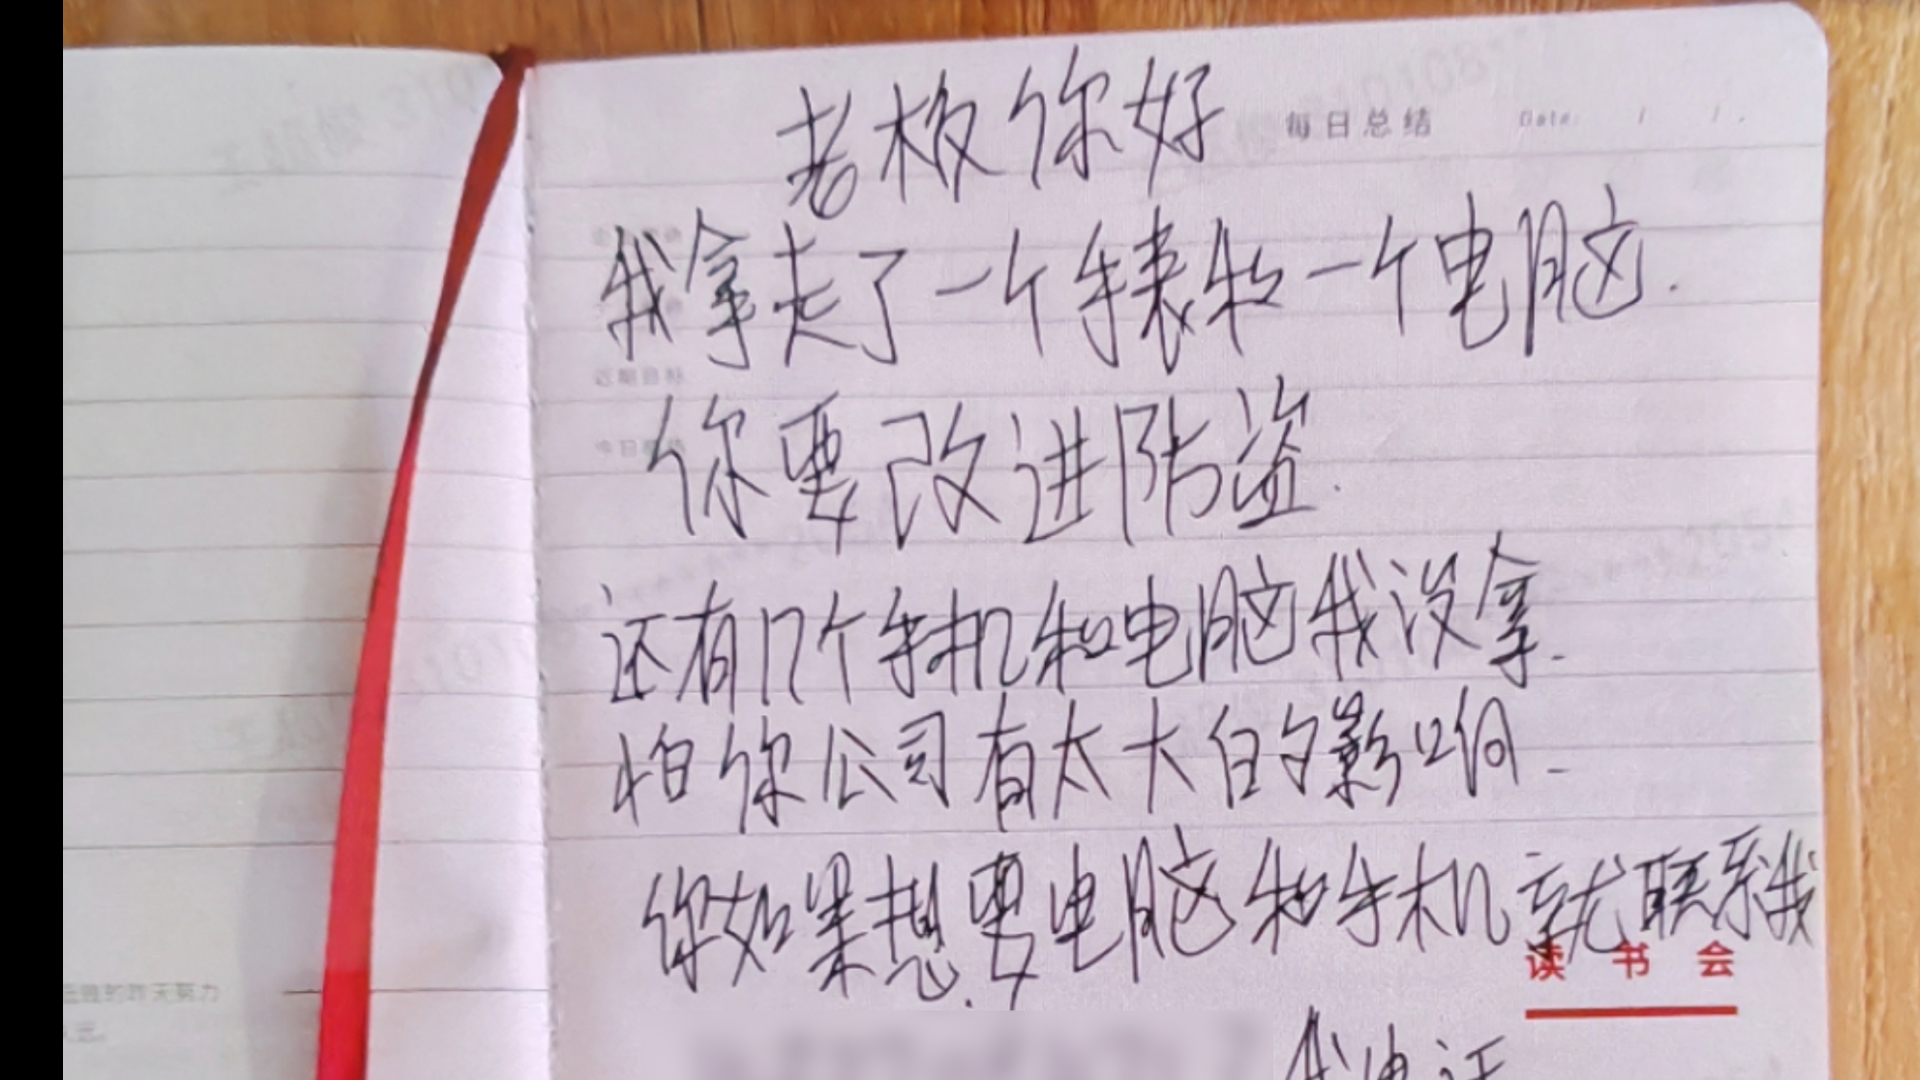 老板你好
每日总结 Date: / / .
我拿走了一个手表和一个电脑.
近期目标
你要改进防盗.
今日
还有几个手机和电脑我没拿.
怕你公司有太大的影响.
你如果想要电脑和手机就联系我
读书会
的昨天努力
我电话